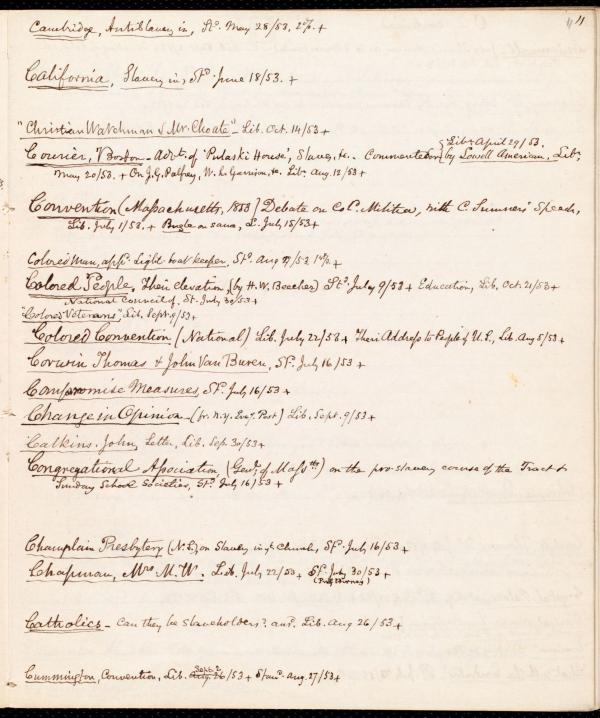 11
Cambridge, Antislavery in, St. May 28/53. 2d p. +
California, Slavery in, St. June 18/53. +
"Christian Watchman & Mr. Choate" - Lib. Oct. 14/53 +
Courier, "Boston - Advt. of 'Pulaski House', Slaves, &c. - Commented on by Lowell American, Lib. April 29/53.
May 20/53. + On J. G. Palfrey, W. L. Garrison, &c. Lib. Aug. 12/53 +
Convention (Massachusetts, 1853) Debate on Col. Militia, with C. Sumner's Speech,
Lib. July 1/53. + Bugle on same, L. July 15/53 +
Colored Man, app. Light boat keeper, St. Aug 27/53 +
Colored People, Their elevation (by H. W. Beecher) St. July 9/53 + Education, Lib. Oct. 21/53 +
National Council of, St. July 30/53 +
"Colored Veterans", Lib. Sept. 9/53 +
Colored Convention (National) Lib. July 22/53 + Their Address to People of U.S., Lib. Aug 5/53 +
Corwin Thomas & John Van Buren, St. July 16/53 +
Compromise Measures, St. July 16/53 +
Change in Opinion - (fr. N.Y. Evg. Post) Lib. Sept. 9/53 +
Calkins, John, Letter, Lib. Sep. 30/53 +
Congregational Association, (Genl. of Mass.) on the pro-slavery course of the Tract &
Sunday School Societies, St. July 16/53 +
Champlain Presbytery (N.S.) on Slavery in ye Church, St. July 16/53 +
Chapman, Mrs M. W. Lib. July 22/53 + St. July 30/53 +
Catholics - Can they be slaveholders? ans. Lib. Aug 26/53 +
Cummington, Convention, Lib. Sept 2/53 + Stand. Aug. 27/53 +